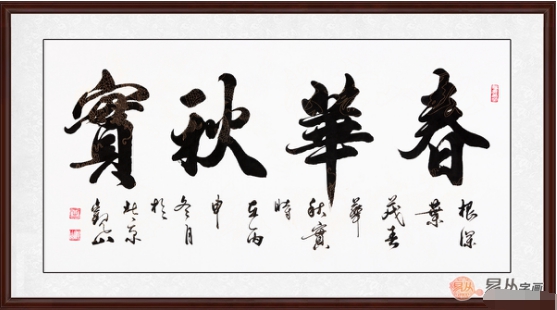 春華秋實
根深葉茂春華秋實時在丙申冬月於北京觀山
易从
易从字画